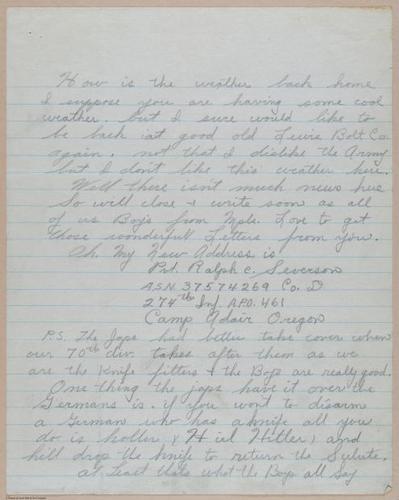 How is the weather back home
I suppose you are having some cool
weather. but I sure would like to
be back at good old Lewis Bolt Co.
again. not that I dislike the Army
but I don't like this weather here.
Well there isn't much news here
So will close & write soon as all
of us Boys from Mpls. Love to get
those wonderfull Letters from you.
Oh, My New Address is
Pvt. Ralph C. Severson
A.S.N. 37574269 Co. D
274th Inf. A.P.O. 461
Camp Adair Oregon
P.S. The Japs had better take cover when
our 70th div. takes after them as we
are the Knife fitters & the Boys are really good.
One thing the japs have it over the
Germans is. if you wont to disarm
a German who has a knife all you
do is holler, (Hiel Hitler) and
he'll drop the knife to return the Salute.
at least thats what the Boys all say